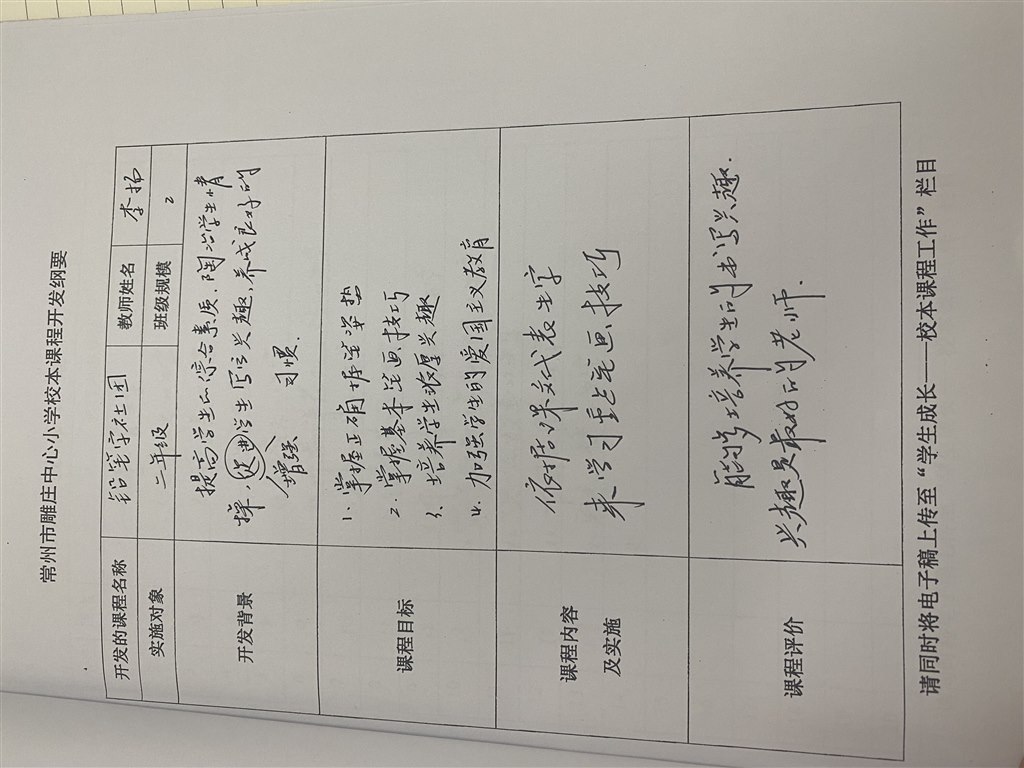 常州市雕庄中心小学校本课程开发纲要
开发的课程名称 铅笔字社团 教师姓名 李扬
实施对象 二年级 班级规模 2
开发背景
提高学生的综合素质、陶冶学生情
操,促进学生写字兴趣,养成良好的
增强 习惯.
课程目标
1. 掌握正确握笔姿势
2. 掌握基本笔画技巧
3. 培养学生浓厚兴趣
4. 加强学生的爱国主义教育
课程内容
及实施
依据课文代表生字
来学习重点笔画技巧
课程评价
能够培养学生的书写兴趣.
兴趣是最好的老师.
请同时将电子稿上传至“学生成长——校本课程工作”栏目